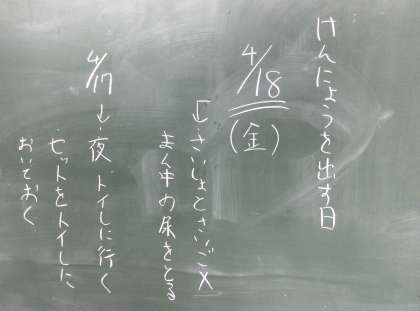 けんにょうを出す日
4/18
(金)
↳・さいしょとさいごX
まん中の尿をとる
4/17→・夜、トイレに行く
・セットをトイレに
おいておく